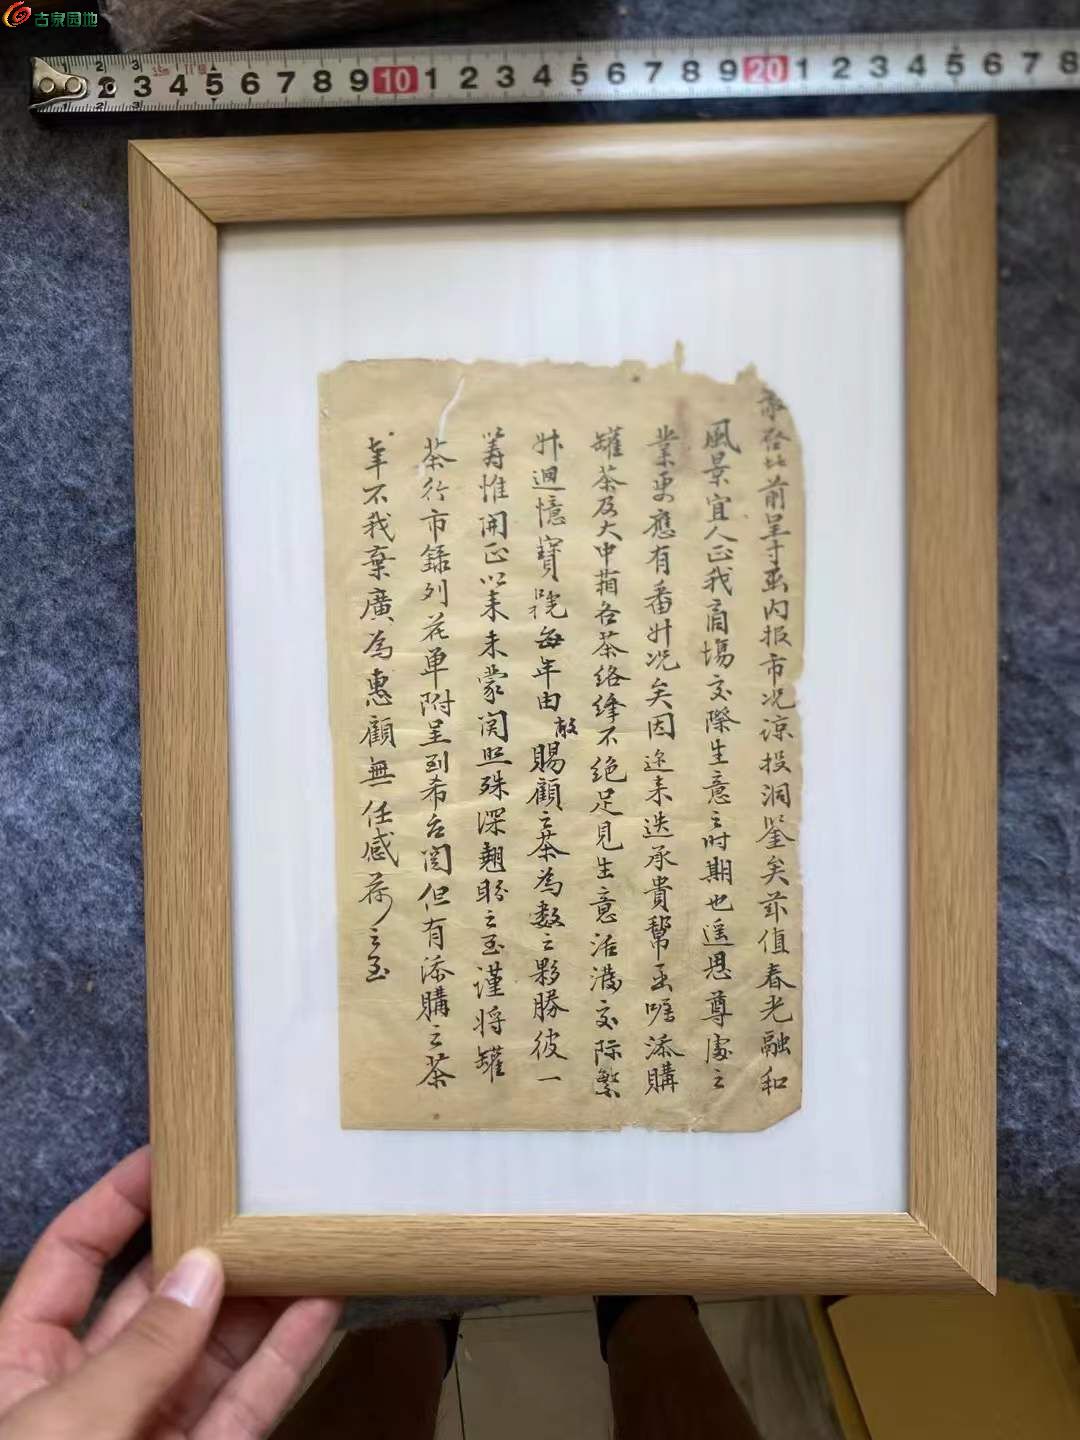 古泉园地
2 3 4 5 6 7 8 9 10 1 2 3 4 5 6 7 8 9 20 1 2 3 4 5 6 7 8
前呈寸函內报市况諒投洞鉴矣茲值春光融和
風景宜人正我商塲交際生意之时期也遥思尊處之
業更應有番升况矣因近来迭承貴幫函嘱添購
罐茶及大中箱各茶络绎不绝足見生意活潑交际繁
升迴憶寶號每年由敝賜顧之茶為數之夥勝彼一
籌惟開正以来未蒙関照殊深翹盼之至谨将罐
茶行市錄列花单附呈到希台阅但有添購之茶
幸不我棄廣為惠顧無任感荷之至